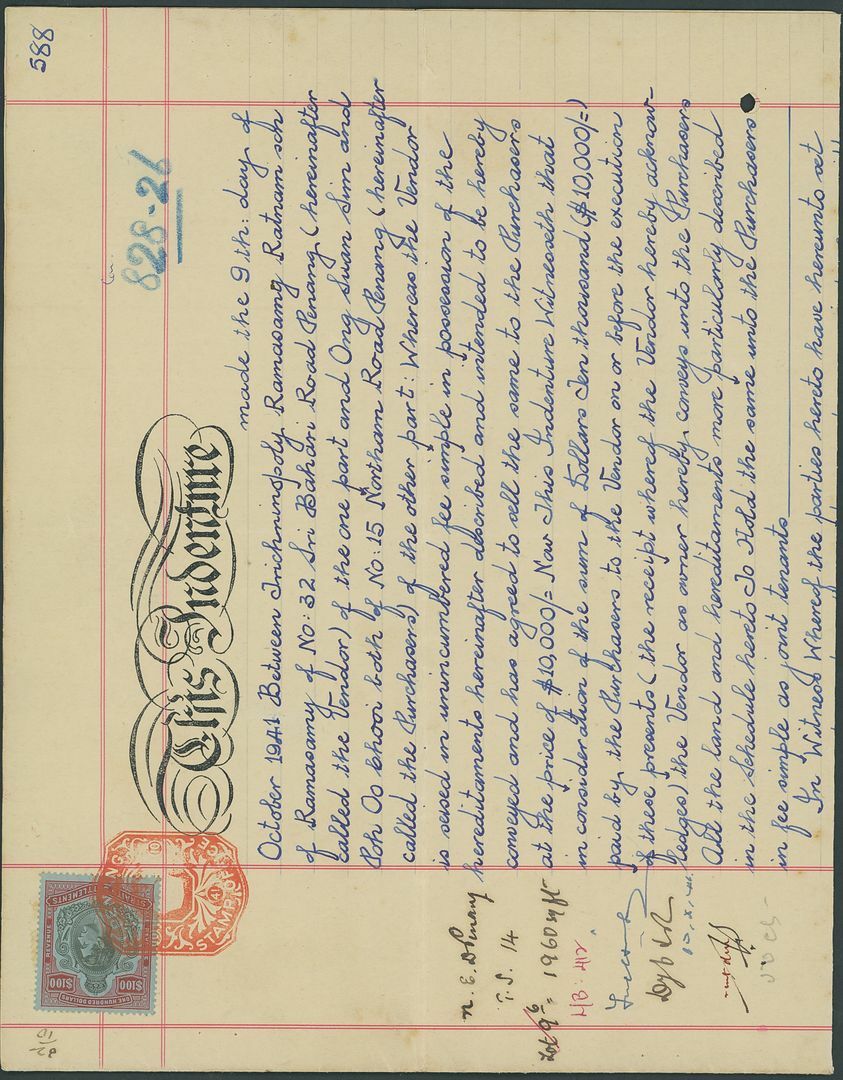 588
828-26
This Indenture
made the 9th: day of
October 1941 Between Trichninopoly Ramasamy Ratnam son
of Ramasamy of No: 32 Sri Bahari Road Penang (hereinafter
called the Vendor) of the one part and Ong Swan Sim and
Poh Oo Khooi both of No: 15 Northam Road Penang (hereinafter
called the Purchasers) of the other part: Whereas the Vendor
is seised in unincumbered fee simple in possession of the
hereditaments hereinafter described and intended to be hereby
conveyed and has agreed to sell the same to the Purchasers
at the price of $10,000/= Now This Indenture Witnesseth that
in consideration of the sum of Dollars Ten thousand ($10,000/=)
paid by the Purchasers to the Vendor on or before the execution
of these presents (the receipt whereof the Vendor hereby acknow-
ledges) the Vendor as owner hereby conveys unto the Purchasers
All the land and hereditaments more particularly described
in the Schedule hereto To Hold the same unto the Purchasers
in fee simple as joint tenants
In Witness Whereof the parties hereto have hereunto set
REVENUE
SETTLEMENTS
$100 $100
ONE HUNDRED DOLLARS
PENANG
STAMP OFFICE
N. E. D Penang
T.S. 14
Lot 96 = 1960 sq ft